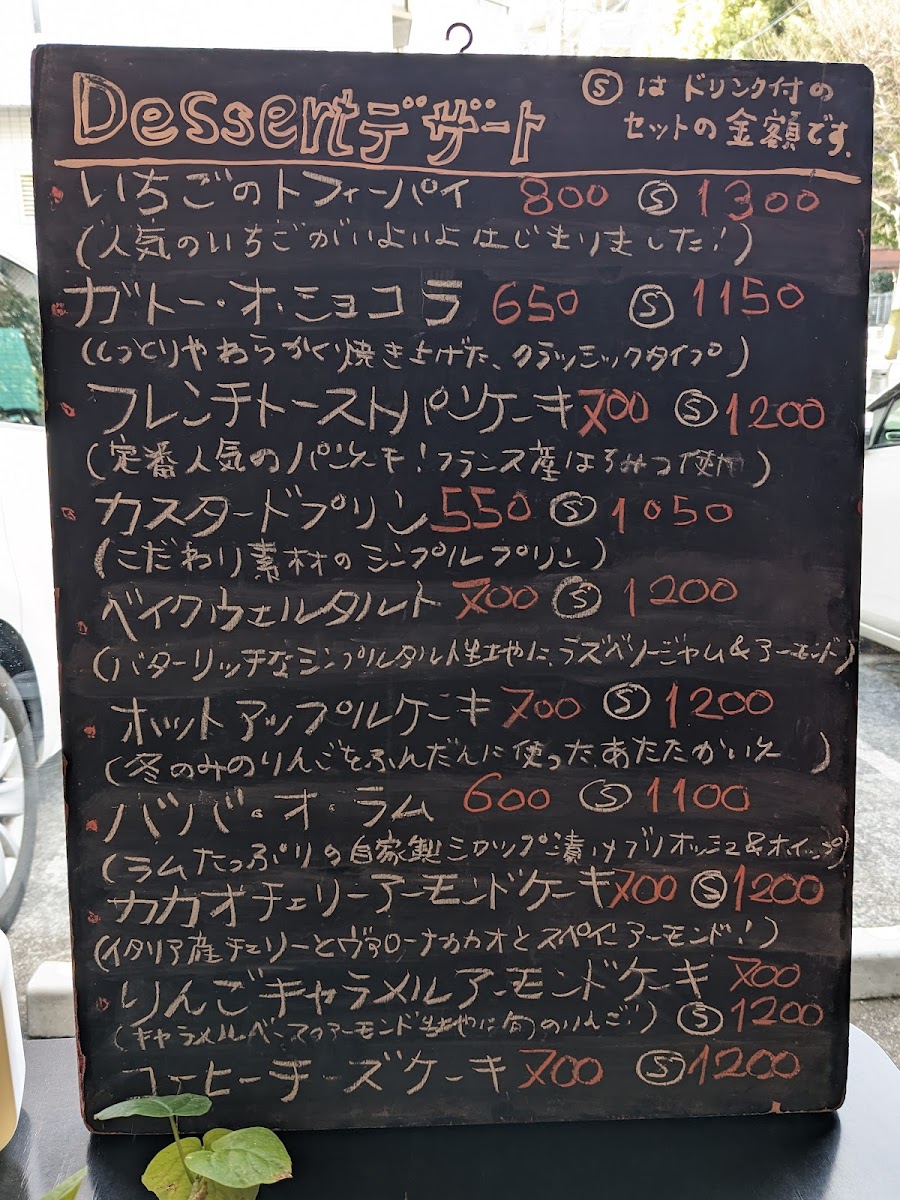 Dessertデザート
Ⓢはドリンク付の
セットの金額です.
いちごのトフィーパイ 800 Ⓢ 1300
(人気のいちごがいよいよはじまりました!)
ガトー・オ・ショコラ 650 Ⓢ 1150
(しっとりやわらかく焼き上げた、クラッシックタイプ)
フレンチトーストパンケーキ 700 Ⓢ 1200
(定番人気のパンケーキ!フランス産はちみつ使用)
カスタードプリン 550 Ⓢ 1050
(こだわり素材のシンプルプリン)
ベイクウェルタルト 700 Ⓢ 1200
(バターリッチなシンプルタルト生地に、ラズベリージャム&アーモンド)
ホットアップルケーキ 700 Ⓢ 1200
(冬のみのりんごをふんだんに使ったあたたかい)
ババ・オ・ラム 600 Ⓢ 1100
(ラムたっぷりの自家製シロップ漬けブリオッシュ&ホイップ)
カカオチェリーアーモンドケーキ 700 Ⓢ 1200
(イタリア産チェリーとヴァローナカカオとスペインアーモンド!)
りんごキャラメルアーモンドケーキ 700
(キャラメルベースのアーモンド生地に旬のりんご) Ⓢ 1200
コーヒーチーズケーキ 700 Ⓢ 1200